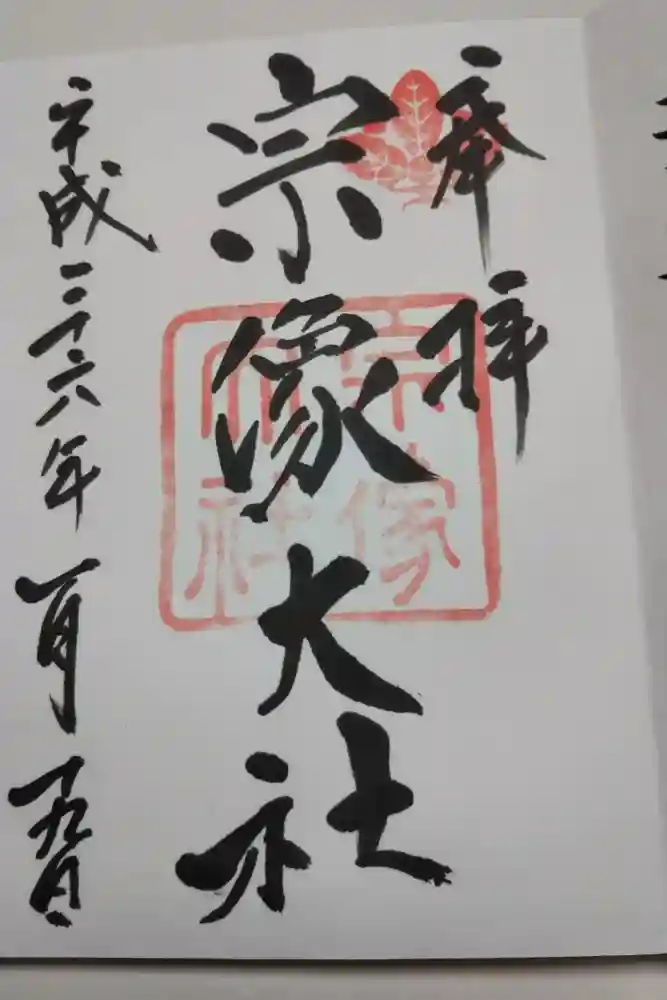 奉拝
宗像大社
平成二十六年一月十九日
宗像
大社